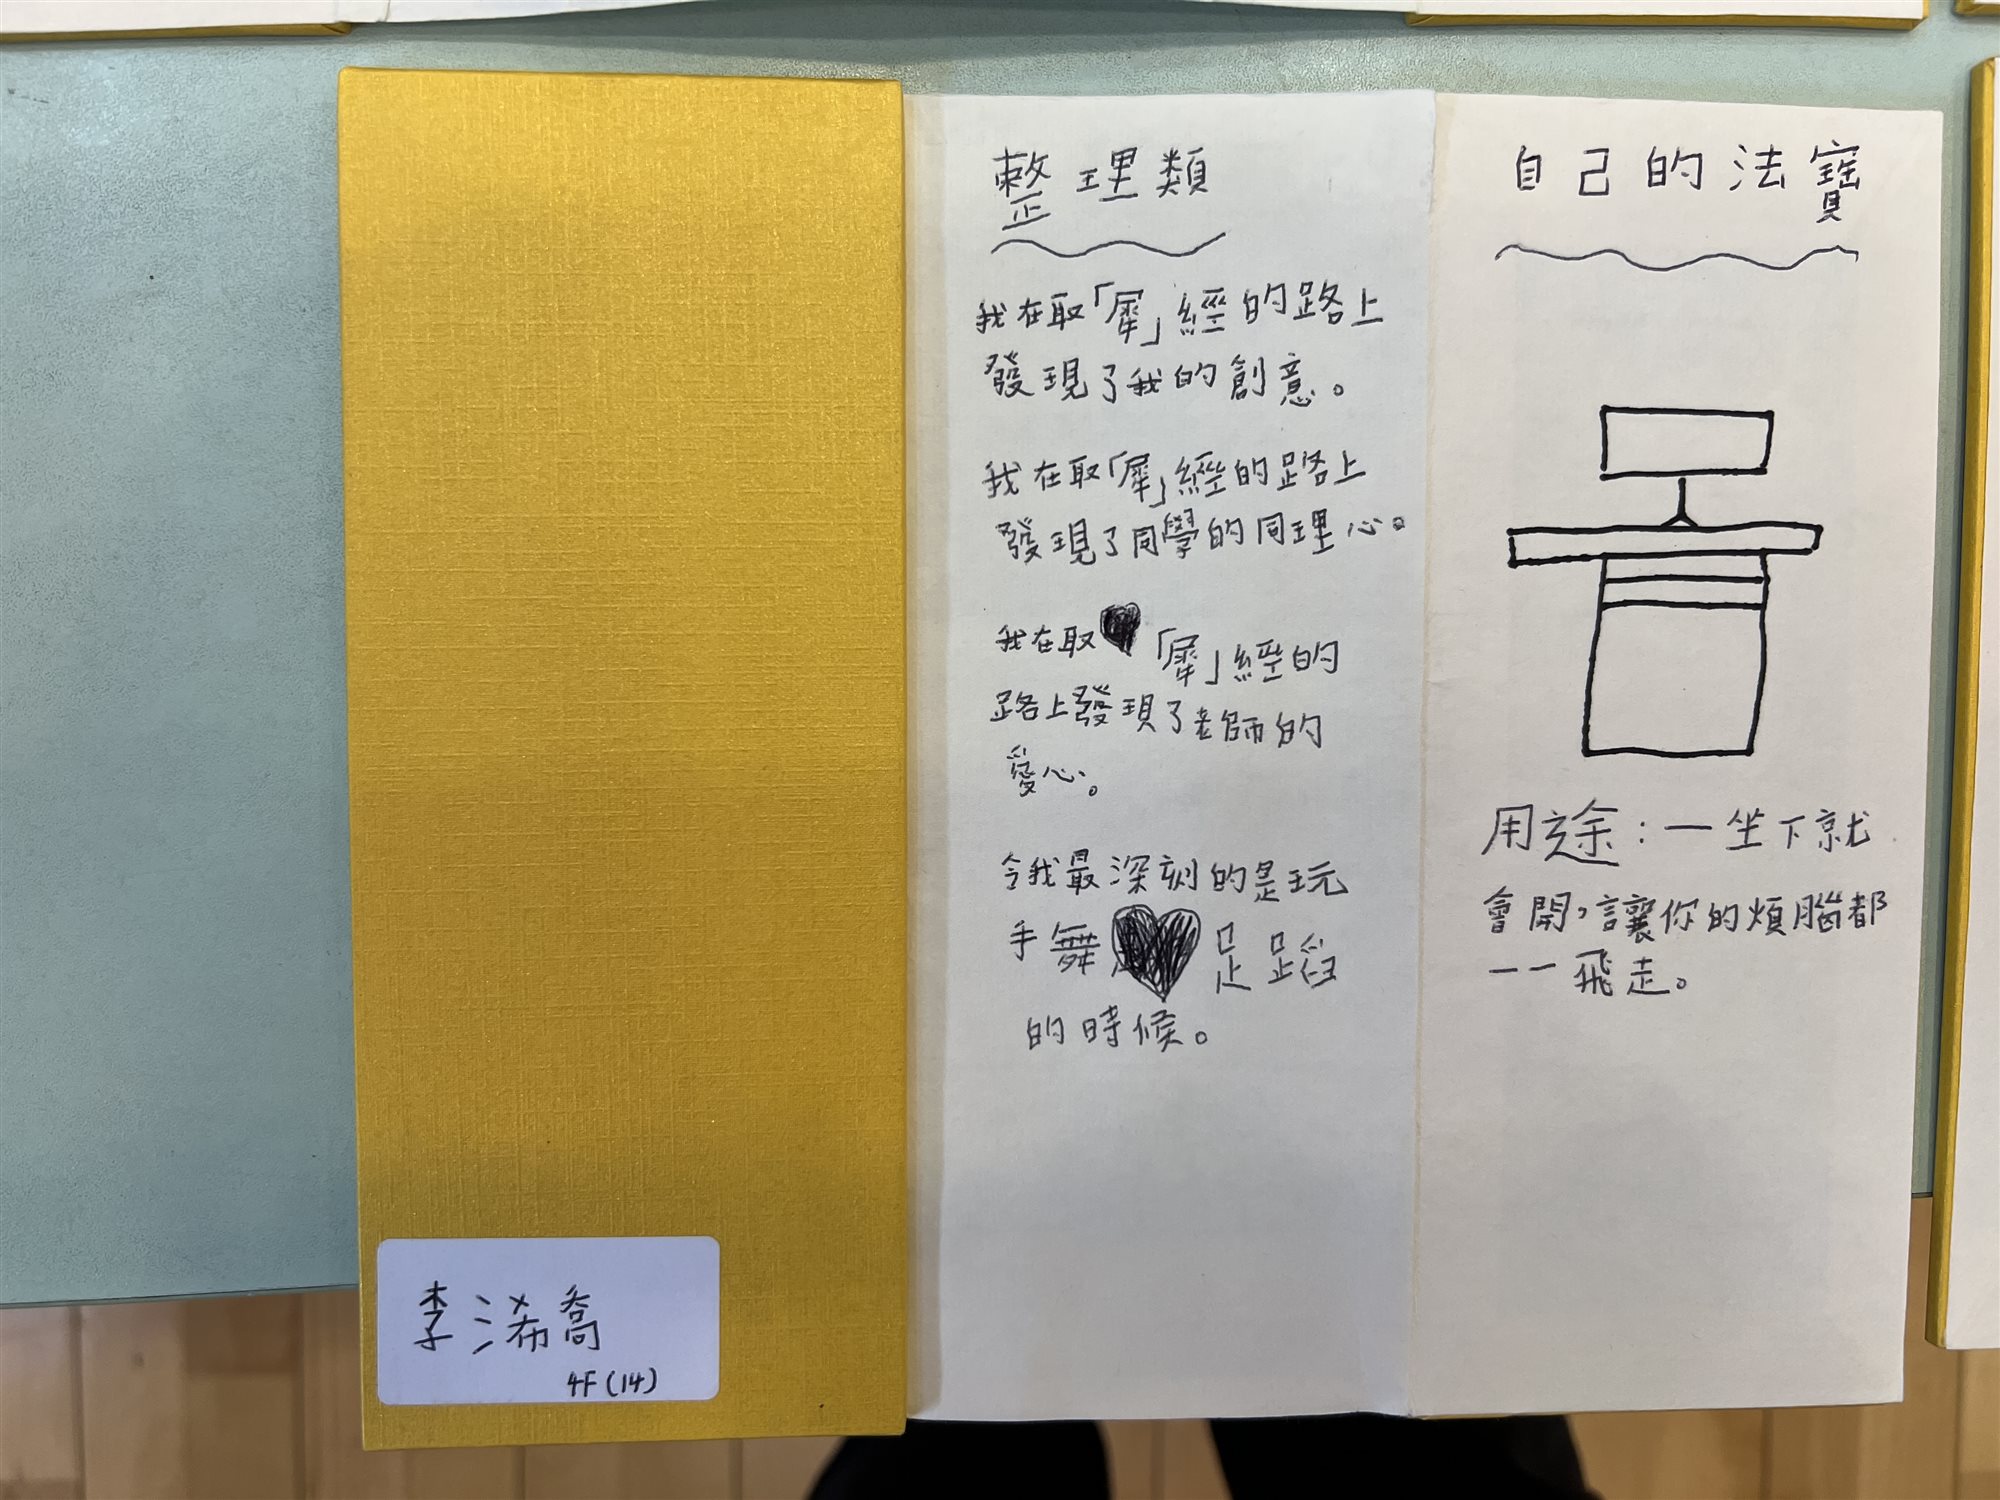 李浠喬
4F(14)
整理類
我在取「犀」經的路上
發現了我的創意。
我在取「犀」經的路上
發現了同學的同理心。
我在取「犀」經的
路上發現了老師的
愛心。
令我最深刻的是玩
手舞足蹈
的時候。
自己的法寶
用途：一坐下就
會開，讓你的煩腦都
一一飛走。